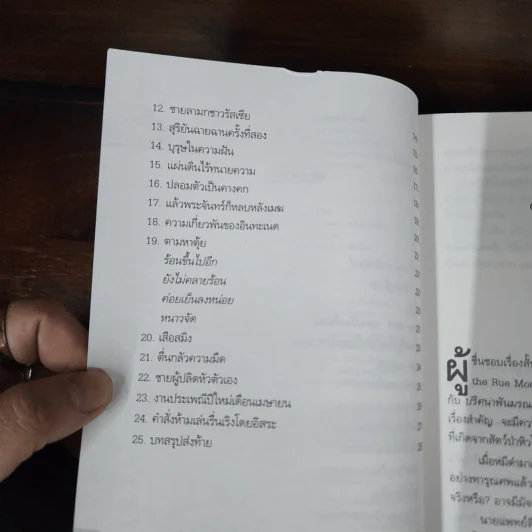 12. ชายลามกชาวรัสเซีย
13. สุริยันฉายฉานครั้งที่สอง
14. บุรุษในความฝัน
15. แผ่นดินไร้ทนายความ
16. ปลอมตัวเป็นคางคก
17. แล้วพระจันทร์ก็หลบหลังเมฆ
18. ความเกี่ยวพันของอินทะเนต
19. ตามหาตุ้ย
ร้อนขึ้นไปอีก
ยังไม่คลายร้อน
ค่อยเย็นลงหน่อย
หนาวจัด
20. เสือสมิง
21. ตื่นกลัวความมืด
22. ชายผู้ปลิดหัวตัวเอง
23. งานประเพณีปีใหม่เดือนเมษายน
24. คำสั่งห้ามเล่นรื่นเริงโดยอิสระ
25. บทสรุปส่งท้าย
ผู้ชื่นชอบเรื่อง
the Rue
กับ
เรื่องสำคัญ
ที่เกิดจากสัตว์ป่า
อย่างทารุณ
จริงหรือ?
นายแพทย์